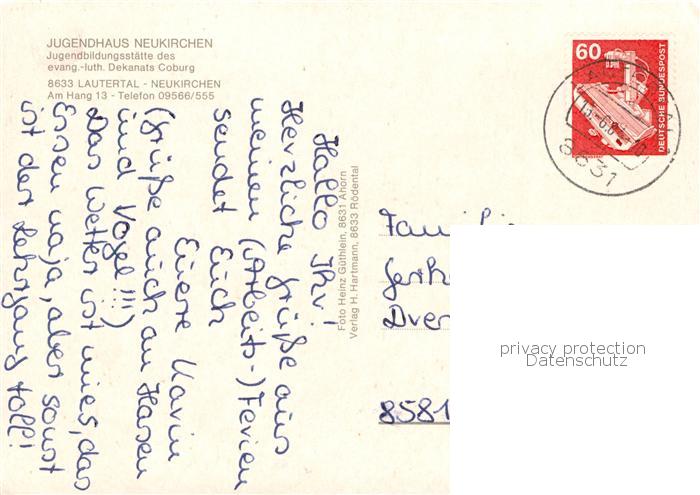 JUGENDHAUS NEUKIRCHEN
Jugendbildungsstätte des
evang.-luth. Dekanats Coburg
8633 LAUTERTAL - NEUKIRCHEN
Am Hang 13 - Telefon 09566/555
Hallo Ihr!
Herzliche Grüße aus
meinen (Arbeits-) Ferien
sendet Euch
Euere Karin
(Grüße auch an Hasen
und Vögel!!!)
Das Wetter ist mies, das
Essen naja, aber sonst
ist der Lehrgang toll!
Foto Heinz Güthlein, 8631 Ahorn
Verlag H. Hartmann, 8633 Rödental
60
DEUTSCHE BUNDESPOST
8631
Familie
Gerh
Dver
8581
privacy protection
Datenschutz